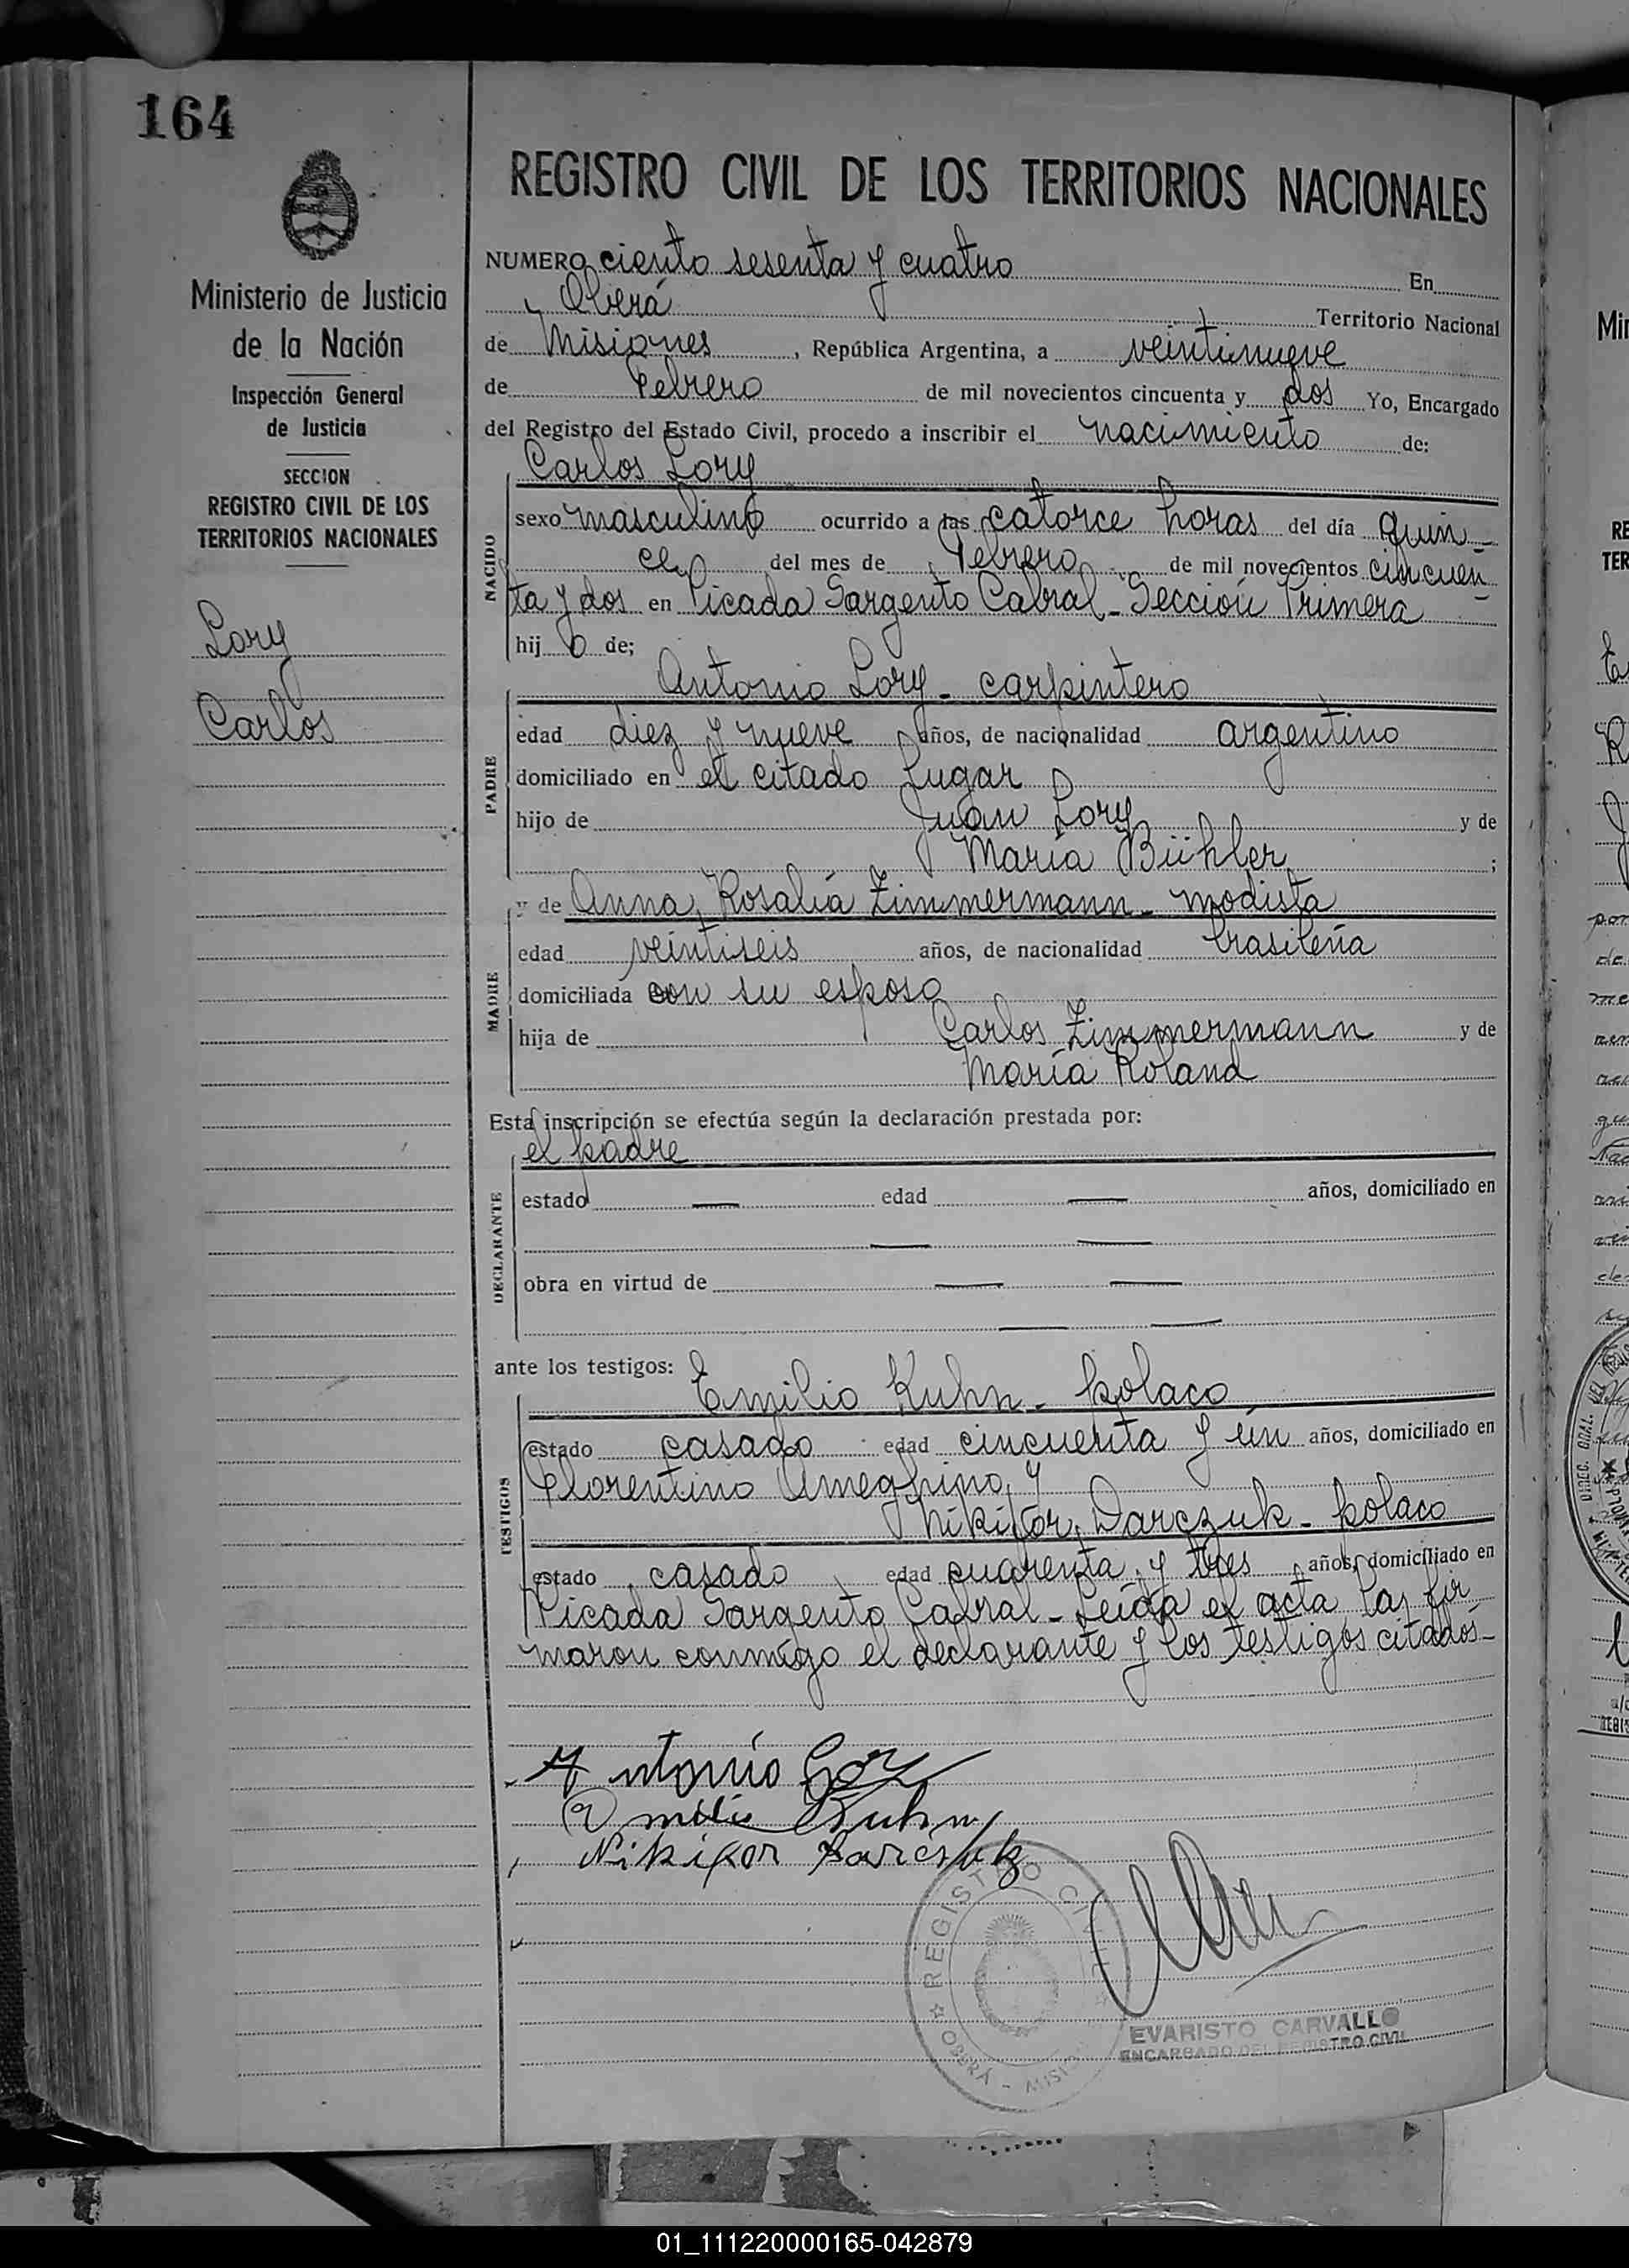 164
Ministerio de Justicia
de la Nación
Inspección General
de Justicia
SECCION
REGISTRO CIVIL DE LOS
TERRITORIOS NACIONALES
Lory
Carlos
REGISTRO CIVIL DE LOS TERRITORIOS NACIONALES
NUMERO ciento sesenta y cuatro En
Oberá Territorio Nacional
de Misiones, República Argentina, a veintinueve
de Febrero de mil novecientos cincuenta y dos Yo, Encargado
del Registro del Estado Civil, procedo a inscribir el nacimiento de:
Carlos Lory
NACIDO
sexo masculino ocurrido a las catorce horas del día quin-
ce del mes de Febrero de mil novecientos cincuen-
ta y dos en Picada Sargento Cabral - Sección Primera
hijo de;
Antonio Lory - carpintero
PADRE
edad diez y nueve años, de nacionalidad argentino
domiciliado en el citado lugar
hijo de Juan Lory y de
María Bühler ;
y de Anna Rosalía Zimmermann - modista
MADRE
edad veintiseis años, de nacionalidad brasileña
domiciliada con su esposo
hija de Carlos Zimmermann y de
María Roland
Esta inscripción se efectúa según la declaración prestada por:
el padre
DECLARANTE
estado — edad — años, domiciliado en
— —
obra en virtud de — —
— —
ante los testigos: Emilio Kuhn - polaco
TESTIGOS
estado casado edad cincuenta y un años, domiciliado en
Florentino Ameghino y
Nikifor Darczuk - polaco
estado casado edad cuarenta y tres años, domiciliado en
Picada Sargento Cabral - Leída el acta la fir
maron conmigo el declarante y los testigos citados -
Antonio Lory
Emilio Kuhn
Nikifor Darczuk
REGISTRO CIVIL
OBERÁ - MISIONES
EVARISTO CARVALLO
ENCARGADO DEL REGISTRO CIVIL
01_111220000165-042879